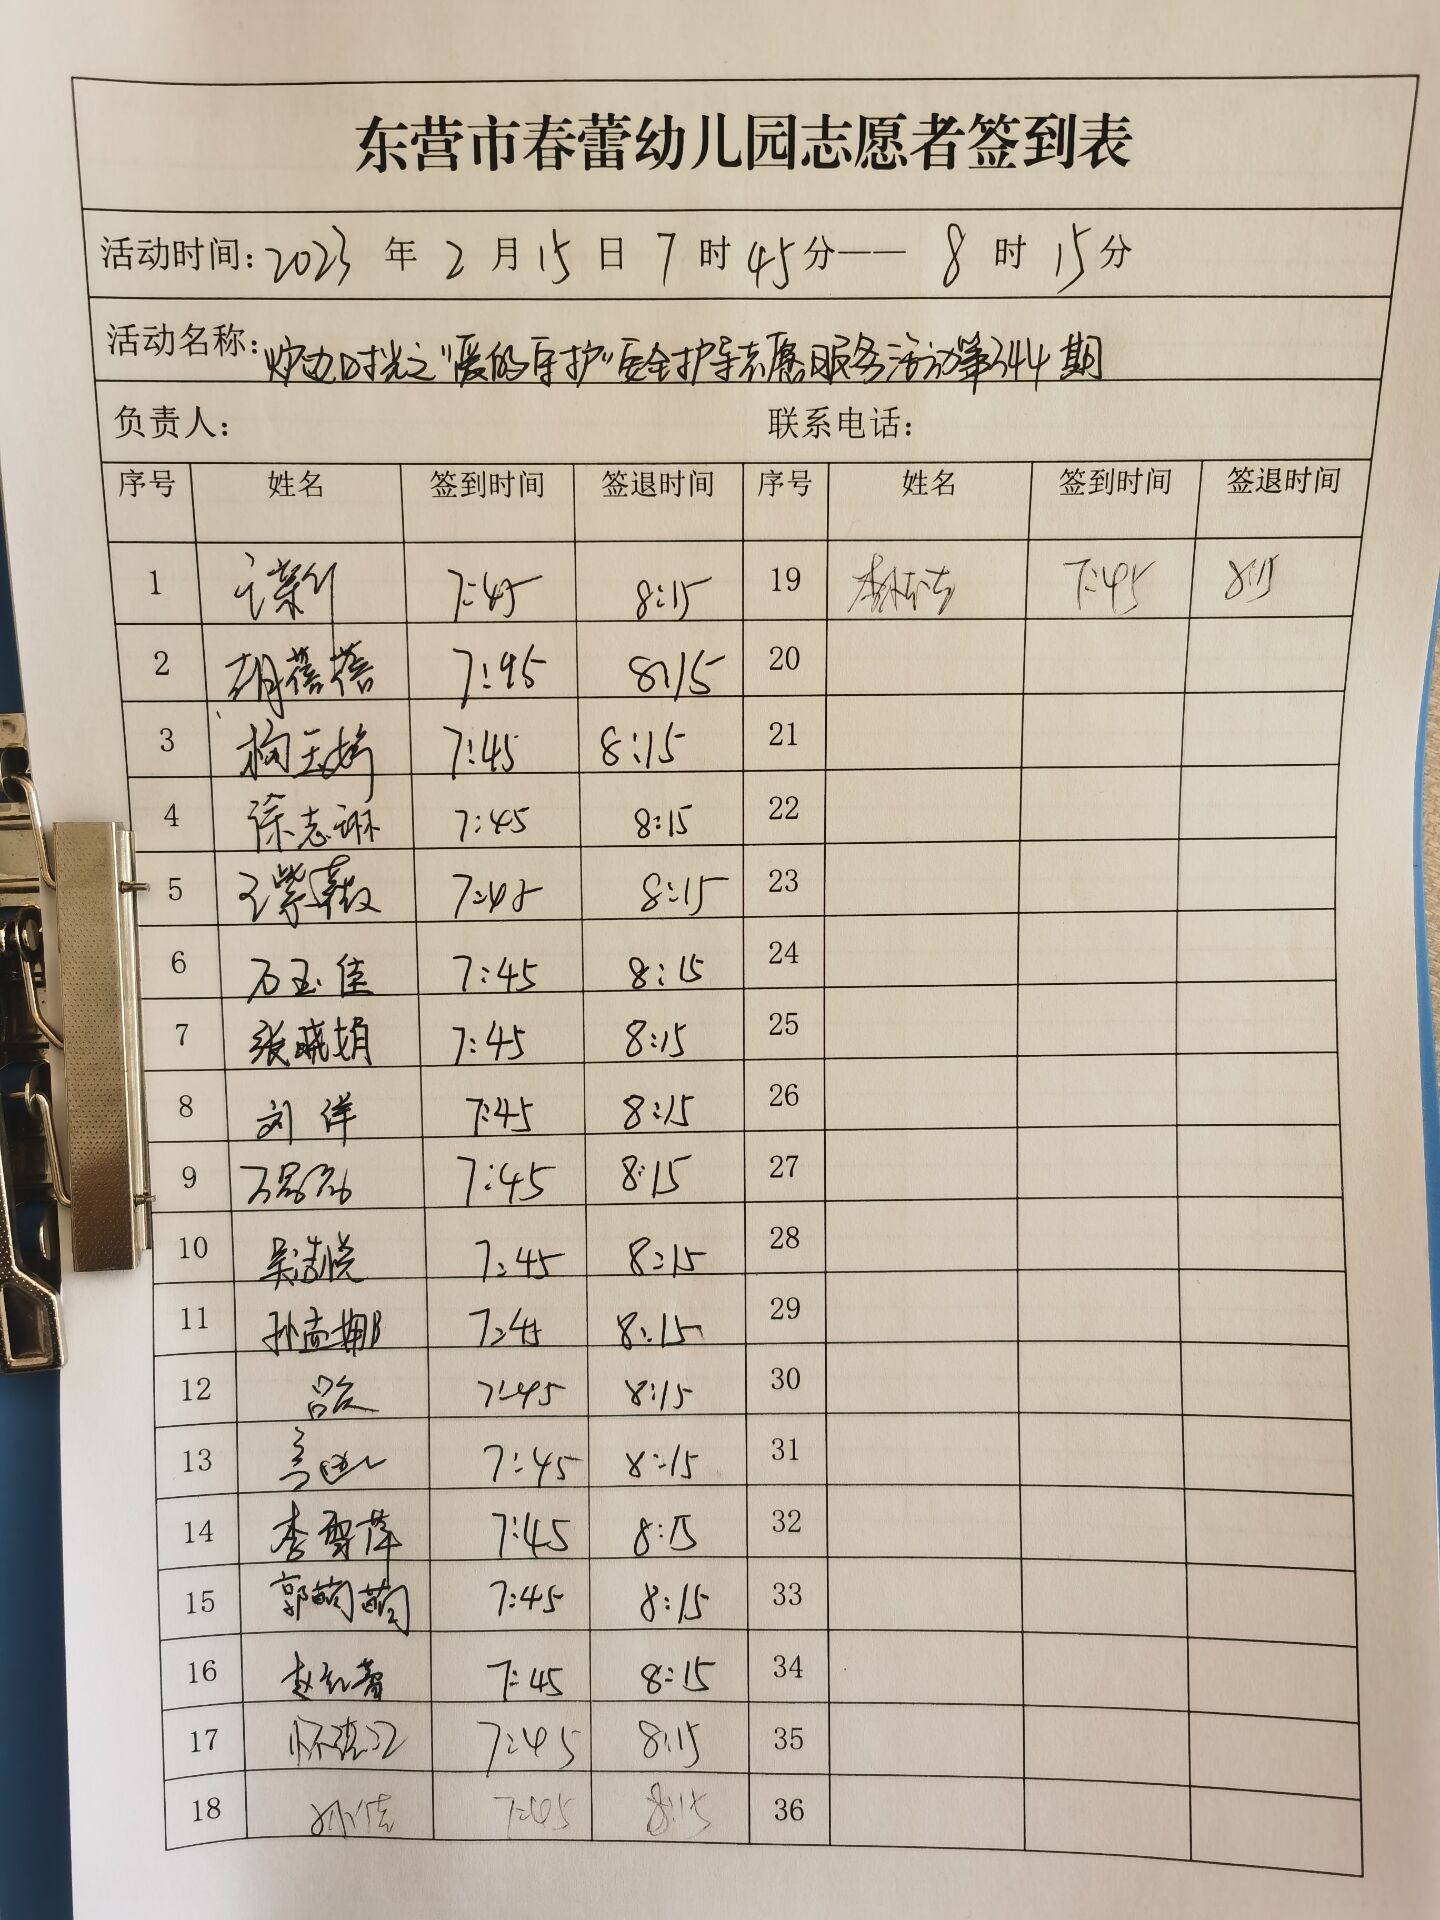 东营市春蕾幼儿园志愿者签到表
活动时间:2023年2月15日7时45分——8时15分
活动名称:炉边时光之"爱的守护"安全护导志愿服务活动第344期
负责人: 联系电话:
序号 姓名 签到时间 签退时间 序号 姓名 签到时间 签退时间
1 7:45 8:15 19 7:45 8:15
2 胡蓓蓓 7:45 8:15 20
3 7:45 8:15 21
4 徐志琳 7:45 8:15 22
5 王紫薇 7:45 8:15 23
6 石玉佳 7:45 8:15 24
7 张晓娟 7:45 8:15 25
8 刘洋 7:45 8:15 26
9 7:45 8:15 27
10 吴洁悦 7:45 8:15 28
11 孙孟娜 7:45 8:15 29
12 7:45 8:15 30
13 7:45 8:15 31
14 李雪萍 7:45 8:15 32
15 郭萌萌 7:45 8:15 33
16 7:45 8:15 34
17 7:45 8:15 35
18 7:45 8:15 36